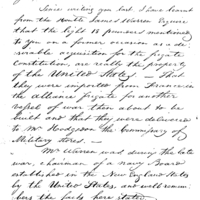 Since writing you last I have learnt
from the Honble James Warren Esquire
that the light 18 pounders mentioned
to you on a former occasion as a de-
sirable acquisition for the frigate
Constitution, are really the property
of the United States — That
they were imported from France in
the Alliance frigate for another
vessel of war then about to be
built and that they were delivered
to Mr Hodgsdon the Commissary of
Military Stores. —
Mr Warren was during the late
war, chairman of a Navy Board
established in the New England States
by the United States, and well remem-
bers the facts here stated